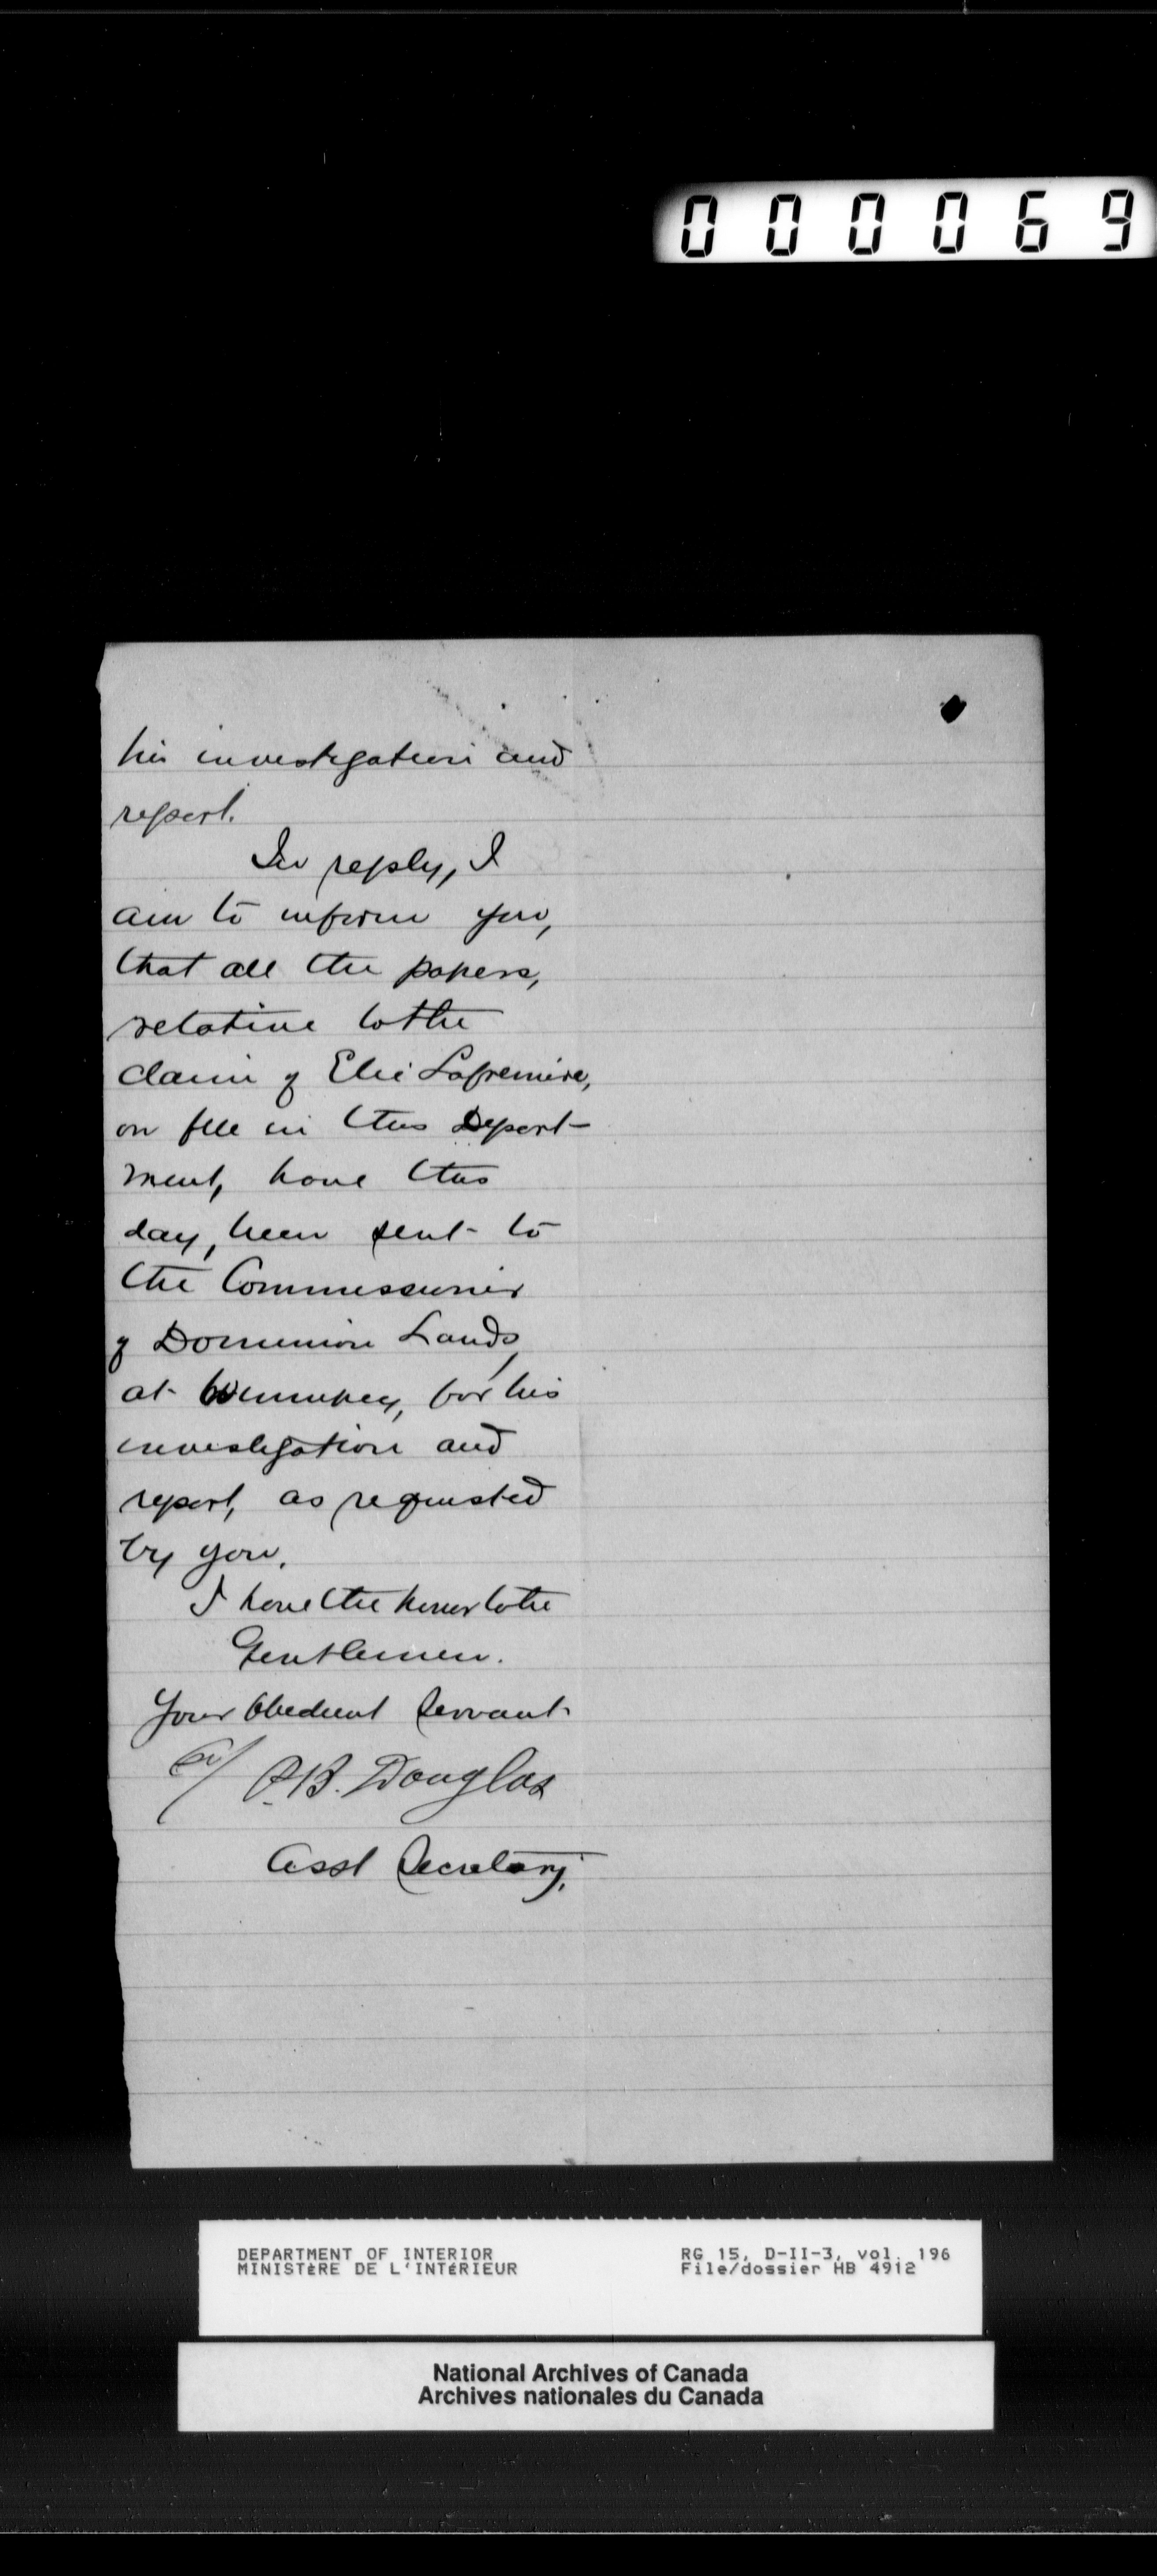 000069
his investigation and
report.
In reply, I
am to inform you,
that all the papers,
relative to the
claim of Elie Lafreniere,
on file in this Depart-
ment, have this
day, been sent to
the Commissioner
of Dominion Lands,
at Winnipeg, for his
investigation and
report, as requested
by you.
I have the honor to be
Gentlemen.
Your Obedient Servant
P.B. Douglas
Asst Secretary.
DEPARTMENT OF INTERIOR RG 15, D-II-3, vol. 196
MINISTèRE DE L'INTéRIEUR File/dossier HB 4912
National Archives of Canada
Archives nationales du Canada